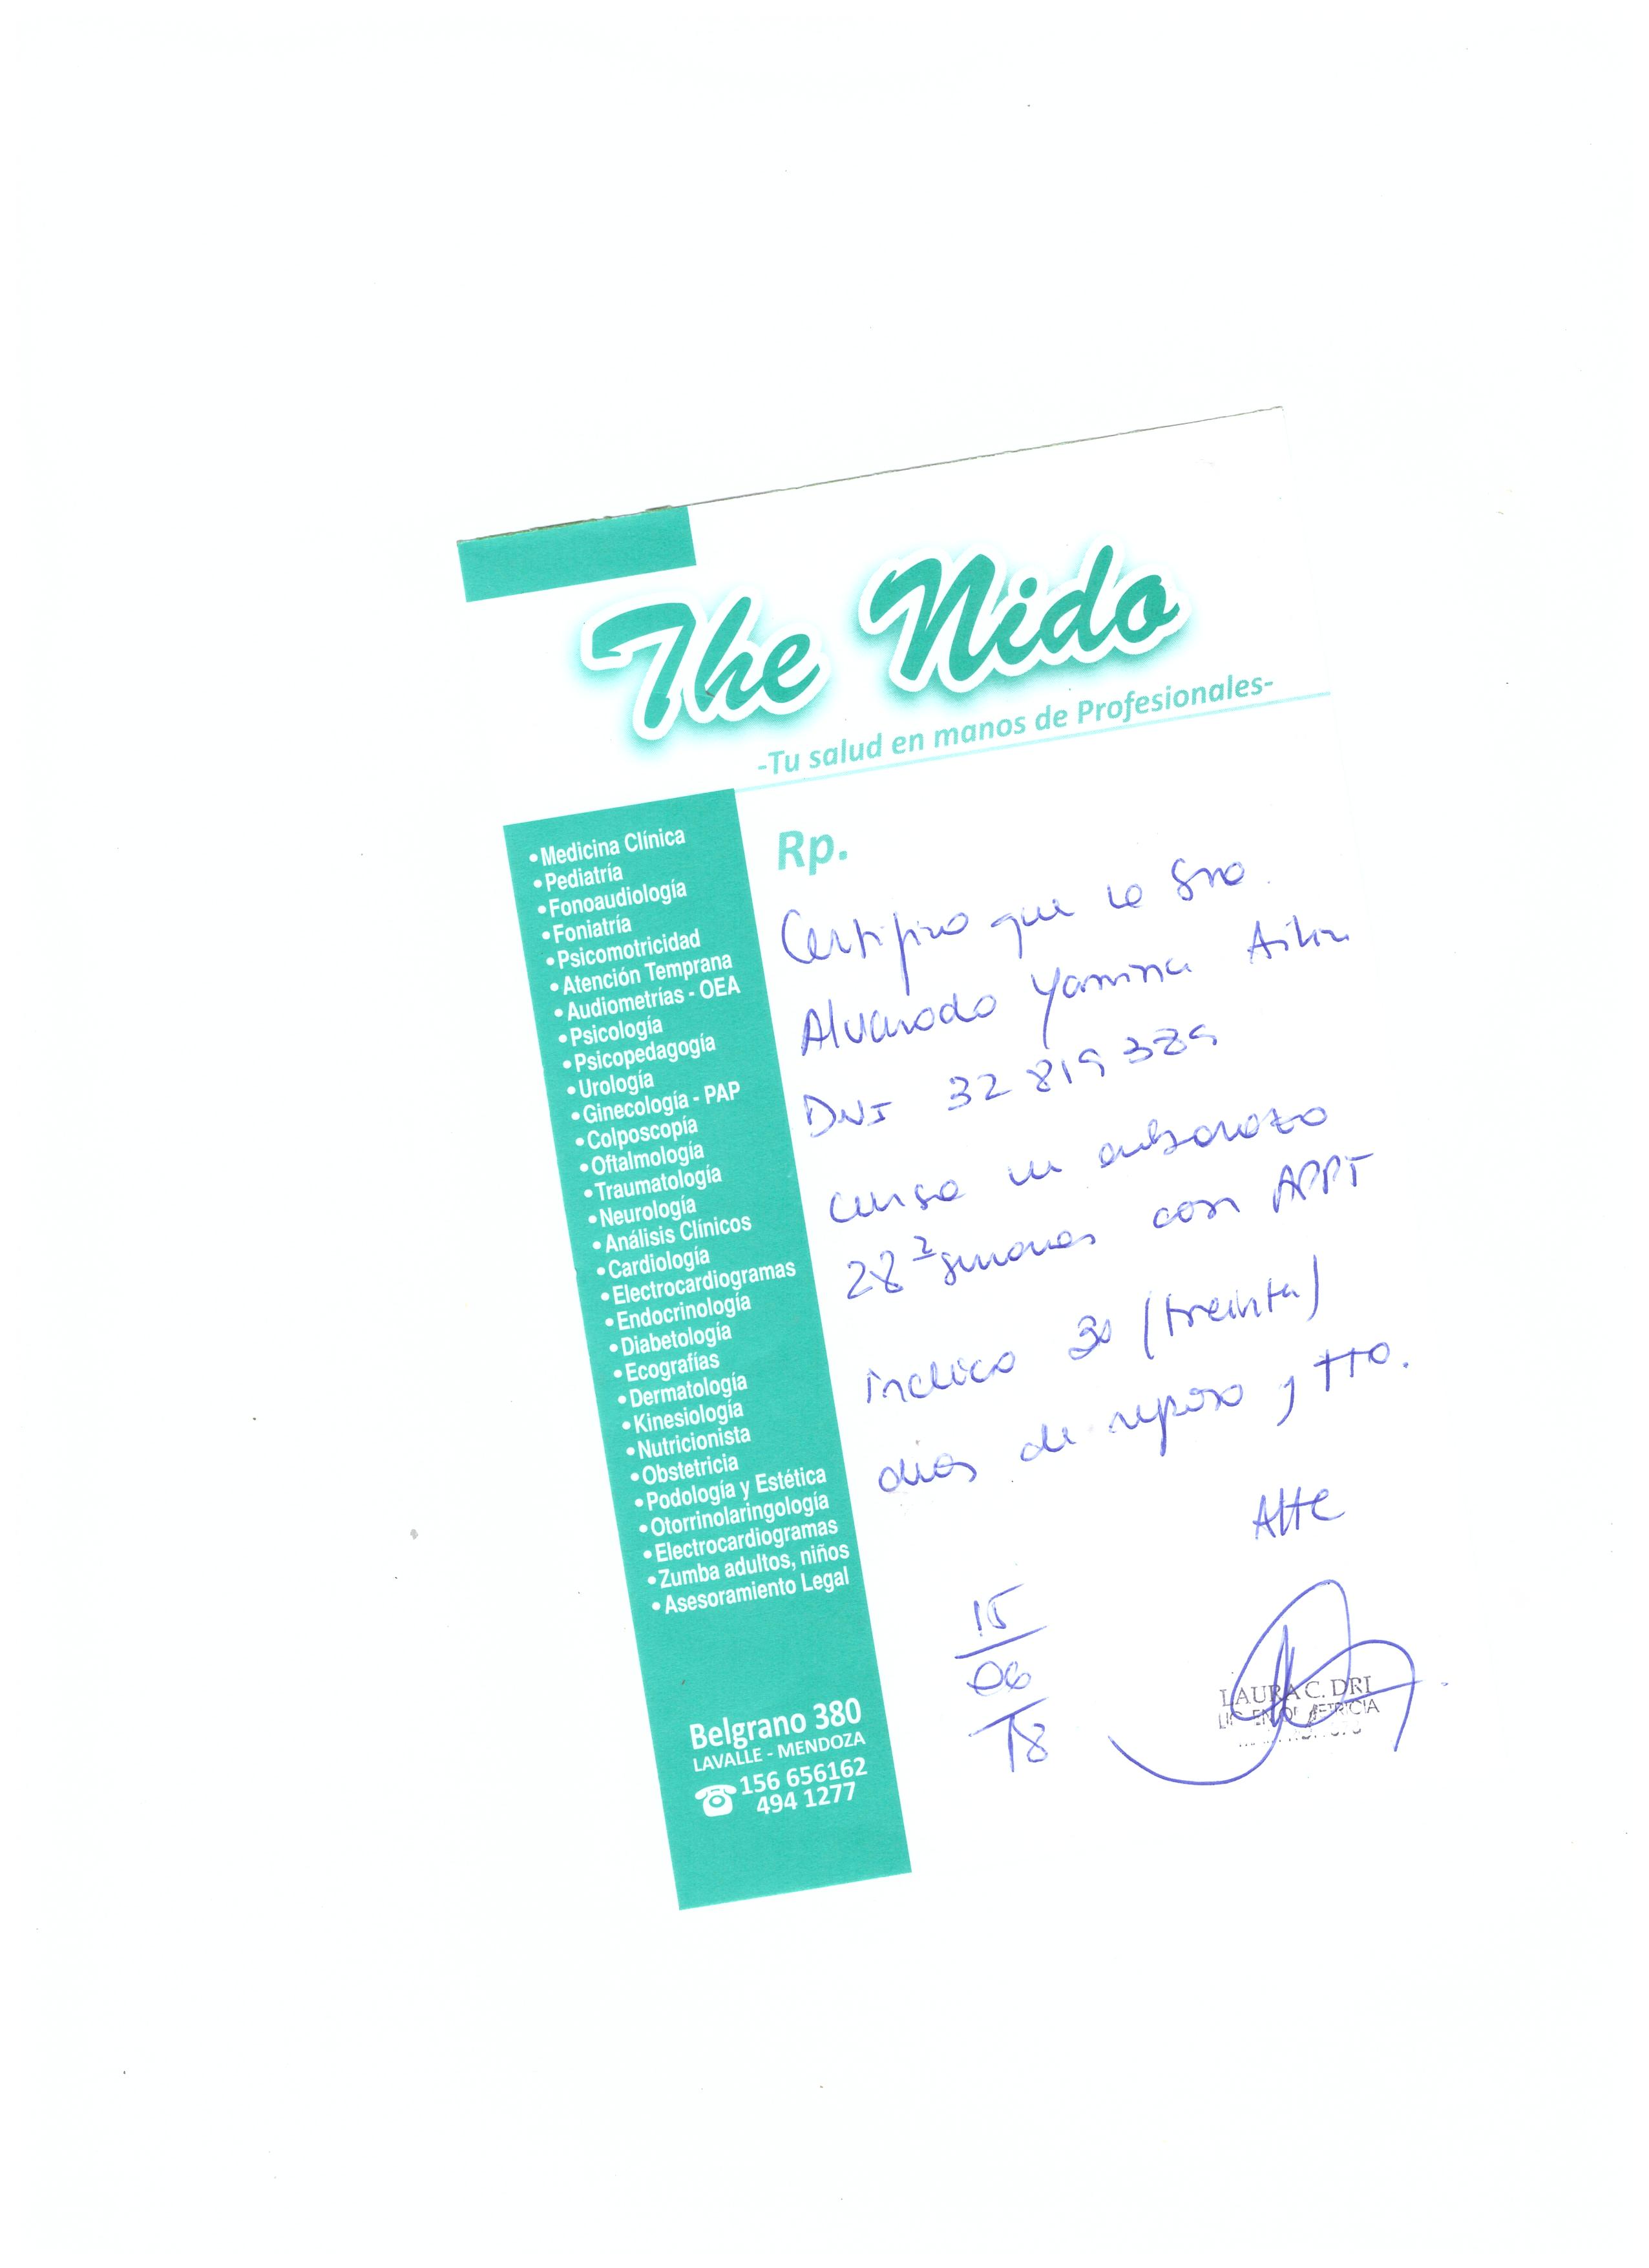 The Nido
-Tu salud en manos de Profesionales-
• Medicina Clínica
• Pediatría
• Fonoaudiología
• Foniatría
• Psicomotricidad
• Atención Temprana
• Audiometrías - OEA
• Psicología
• Psicopedagogía
• Urología
• Ginecología - PAP
• Colposcopía
• Oftalmología
• Traumatología
• Neurología
• Análisis Clínicos
• Cardiología
• Electrocardiogramas
• Endocrinología
• Diabetología
• Ecografías
• Dermatología
• Kinesiología
• Nutricionista
• Obstetricia
• Podología y Estética
• Otorrinolaringología
• Electrocardiogramas
• Zumba adultos, niños
• Asesoramiento Legal
Belgrano 380
LAVALLE - MENDOZA
156 656162
494 1277
Rp.
Certifico que la Sra
Alvarado Yamina
DNI 32 819 389
cursa un embarazo
28 2 semanas con APPT
indico 30 (treinta)
días de reposo y tto.
Atte
15
06
18
LAURA C. DRI